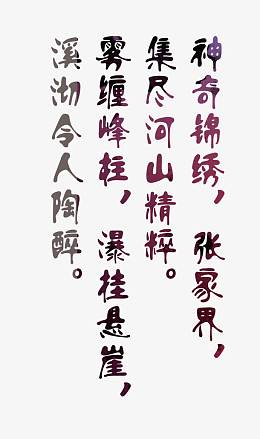 神奇锦绣，张家界，
集尽河山精粹。
雾缠峰柱，瀑挂悬崖，
溪沏令人陶醉。